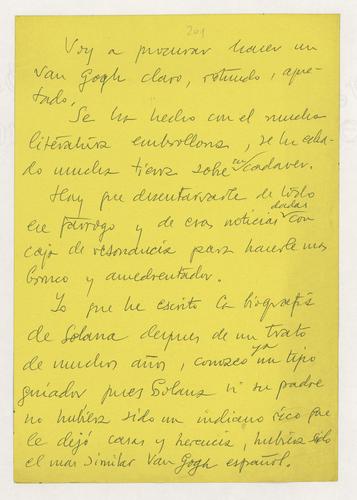 201
Voy a procurar hacer un
Van Gogh claro, rotundo, apre-
tado.
Se ha hecho con el mucha
literatura embrollona, se ha echa-
do mucha tierra sobre su cadaver.
Hay que desenterrarle de todo
ese farrago y de esas noticias dadas con
caja de resonancia para hacerle mas
bronco y amedrentador.
Yo que he escrito la biografia
de Solana despues de un trato
de muchos años, conozco ya un tipo
guiador, pues Solana si su padre
no hubiera sido un indiano rico que
le dejó casas y herencia, hubiera sido
el mas similar Van Gogh español.